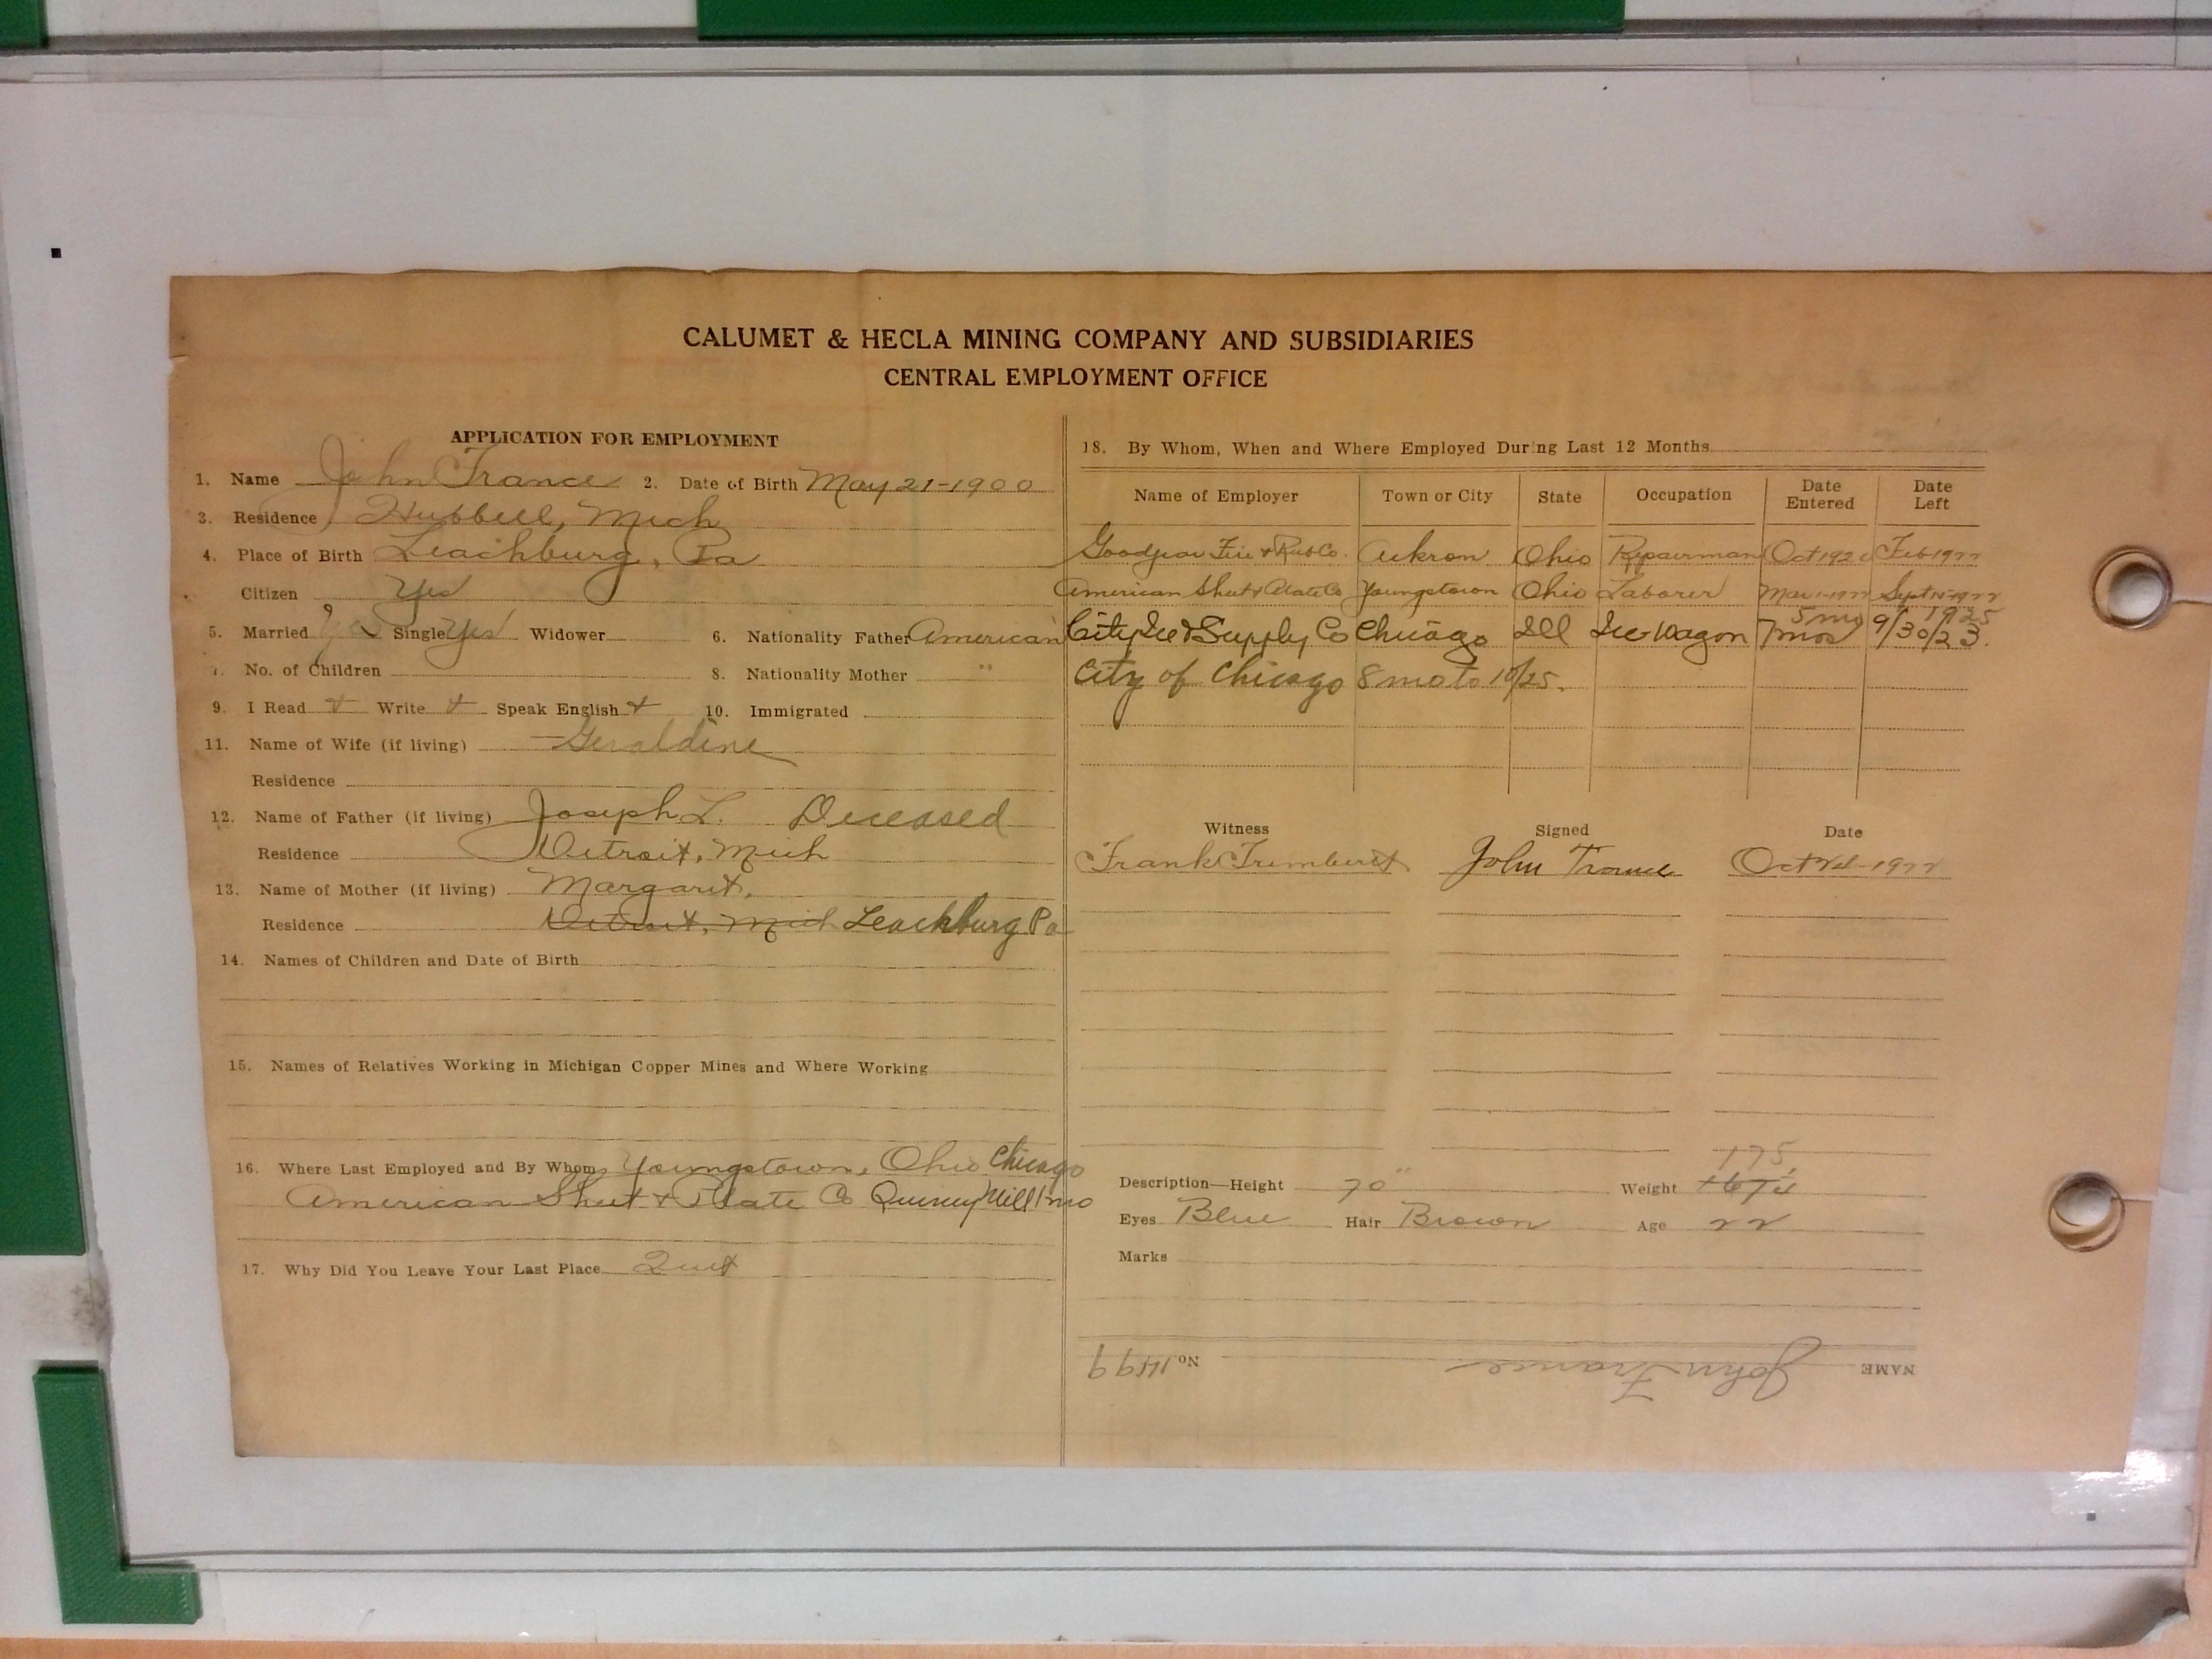 CALUMET & HECLA MINING COMPANY AND SUBSIDIARIES
CENTRAL EMPLOYMENT OFFICE
APPLICATION FOR EMPLOYMENT
1. Name John Trance 2. Date of Birth May 21-1900
3. Residence Hubbell, Mich
4. Place of Birth Leachburg, Pa
Citizen Yes
5. Married Yes Single Yes Widower 6. Nationality Father American
7. No. of Children 8. Nationality Mother "
9. I Read + Write + Speak English + 10. Immigrated
11. Name of Wife (if living) Geraldine
Residence
12. Name of Father (if living) Joseph L. Deceased
Residence Detroit, Mich
13. Name of Mother (if living) Margaret,
Residence Detroit, Mich Leachburg Pa
14. Names of Children and Date of Birth
15. Names of Relatives Working in Michigan Copper Mines and Where Working
16. Where Last Employed and By Whom Youngstown, Ohio Chicago
American Sheet & Plate Co Quincy Mill 1 mo
17. Why Did You Leave Your Last Place Quit
18. By Whom, When and Where Employed During Last 12 Months
Name of Employer Town or City State Occupation Date Entered Date Left
Goodyear Tire & Rub Co. Ackron Ohio Repairman Oct 1920 Feb 1922
American Sheet & Plate Co Youngstown Ohio Laborer Mar 1-1922 Sept 15-1922
5 mo 1925
City Ice & Supply Co Chicago Ill Ice Wagon 7 mos 9/30/23.
City of Chicago 8 mo to 10/25.
Witness Signed Date
Frank John Trance Oct 1922
175
Description—Height 70" Weight
Eyes Blue Hair Brown Age 22
Marks
NAME John Trance No. 11499